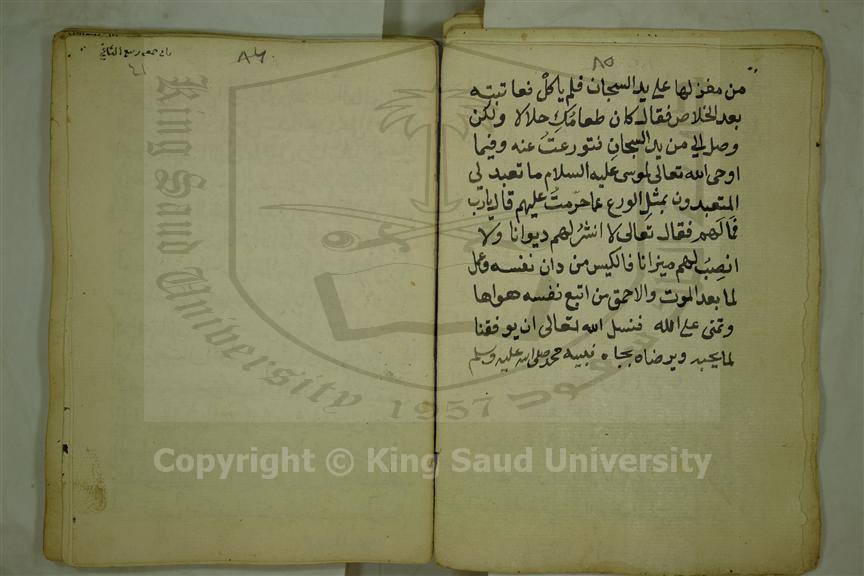 ٨٥
من مغزلها على يد السجان فلم ياكل فعاتبته
بعد الخلاص فقال كان طعامُكِ حلالا ولكن
وصل الي من يد السجان فتورعتُ عنه وفيما
اوحى الله تعالى لموسى عليه السلام ما تعبد لي
المتعبدون بمثل الورع عما حرمتُ عليهم قال يارب
فما لهم فقال تعالى لا انشر لهم ديوانا ولا
انصِبُ لهم ميزانا فالكيس من دان نفسه وعمل
لما بعد الموت والاحمق من اتبع نفسه هواها
وتمنى على الله فنسل الله تعالى ان يوفقنا
لما يحبه ويرضاه بجاه نبيه محمد صلى الله عليه وسلم
٨٦
٤١
King Saud University
1957
Copyright © King Saud University